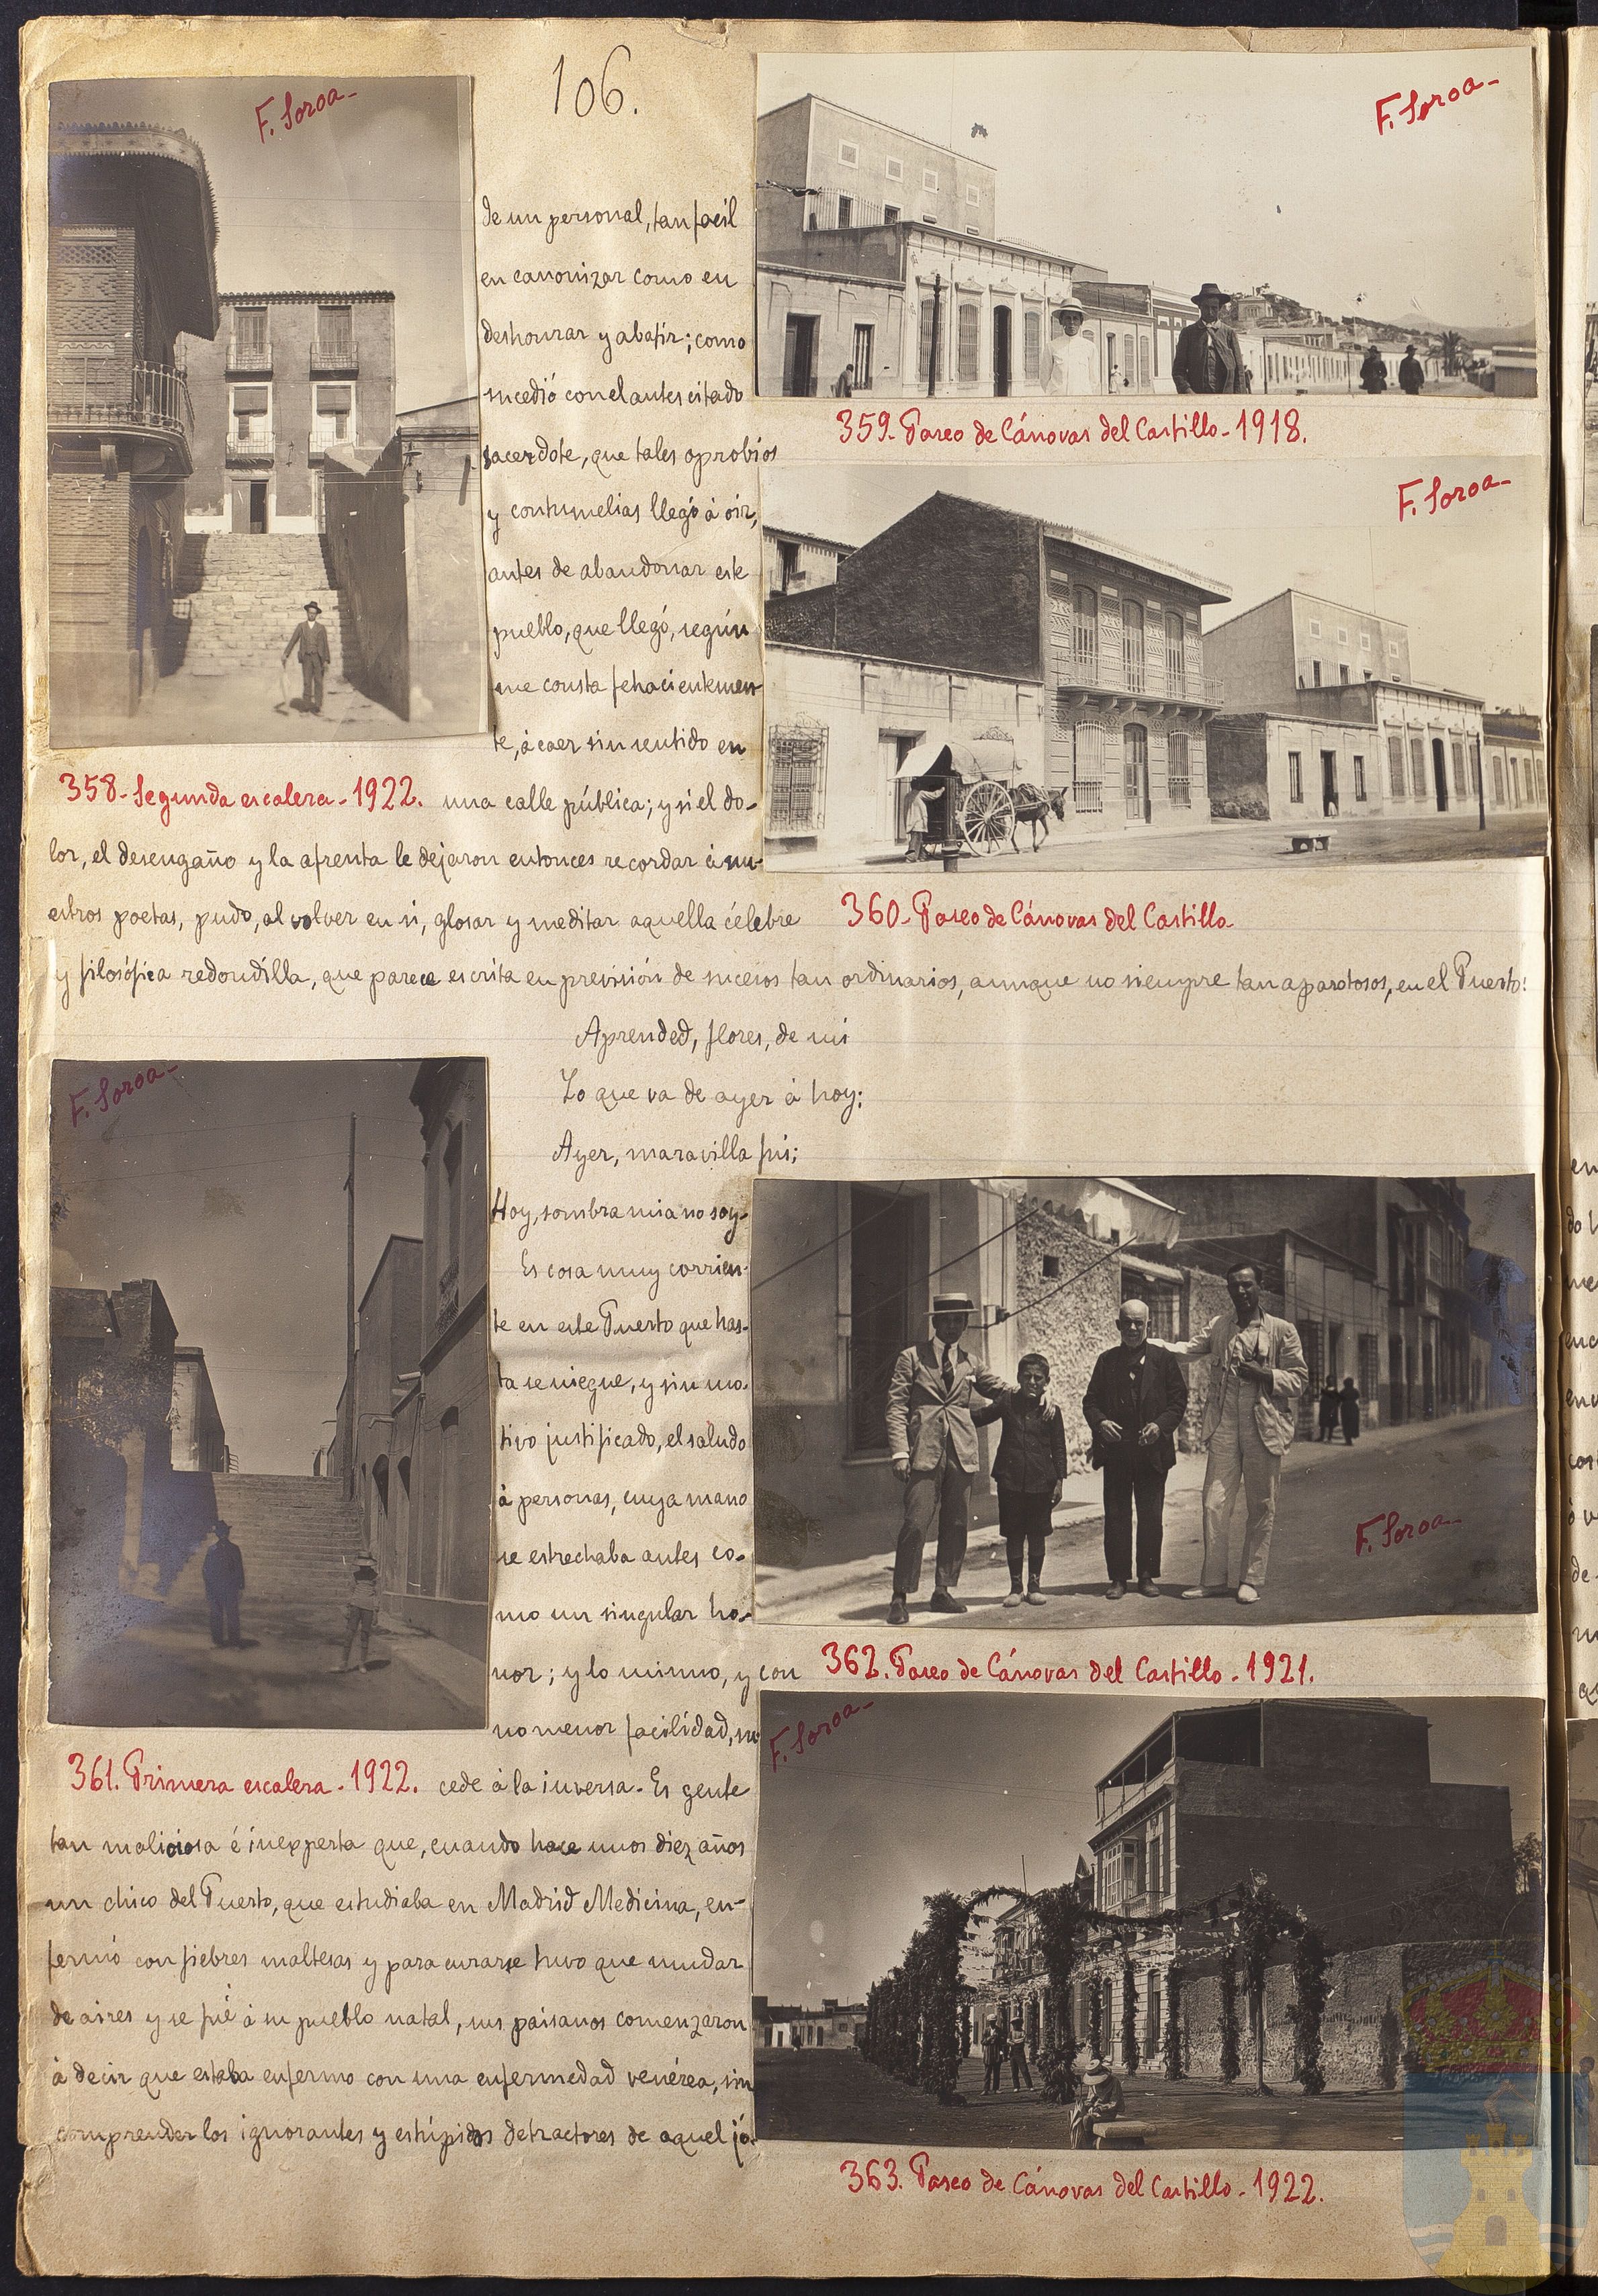 106.
F. Soroa-
F. Soroa-
de un personal, tan facil
en canonizar como en
deshonrar y abatir; como
sucedió con el antes citado
sacerdote, que tales oprobios
y contumelias llegó à oir,
antes de abandonar este
pueblo, que llegó, según
me consta fehacientemen-
te, à caer sin sentido en
359. Paseo de Cánovas del Castillo - 1918.
F. Soroa-
358- Segunda escalera - 1922. una calle pública; y si el do-
lor, el desengaño y la afrenta le dejaron entonces recordar à nu-
estros poetas, pudo, al volver en si, glosar y meditar aquella célebre
360- Paseo de Cánovas del Castillo-
y filosófica redondilla, que parece escrita en previsión de sucesos tan ordinarios, aunque no siempre tan aparatosos, en el Puerto:
Aprended, flores, de mi
Lo que va de ayer à hoy;
Ayer, maravilla fui;
Hoy, sombra mia no soy-
F. Soroa-
Es cosa muy corrien-
te en este Puerto que has-
ta se niegue, y sin mo-
tivo justificado, el saludo
à personas, cuya mano
se estrechaba antes co-
mo un singular ho-
nor; y lo mismo, y con
no menor facilidad, su
F. Soroa-
362. Paseo de Cánovas del Castillo - 1921.
F. Soroa-
361. Primera escalera - 1922. cede à la inversa - Es gente
tan maliciosa é inexperta que, cuando hace unos diez años
un chico del Puerto, que estudiaba en Madrid Medicina, en-
fermó con fiebres maltesas y para curarse tuvo que mudar
de aires y se fué à su pueblo natal, sus paisanos comenzaron
à decir que estaba enfermo con una enfermedad venérea, sin
comprender los ignorantes y estúpidos detractores de aquel jó-
363. Paseo de Cánovas del Castillo - 1922.